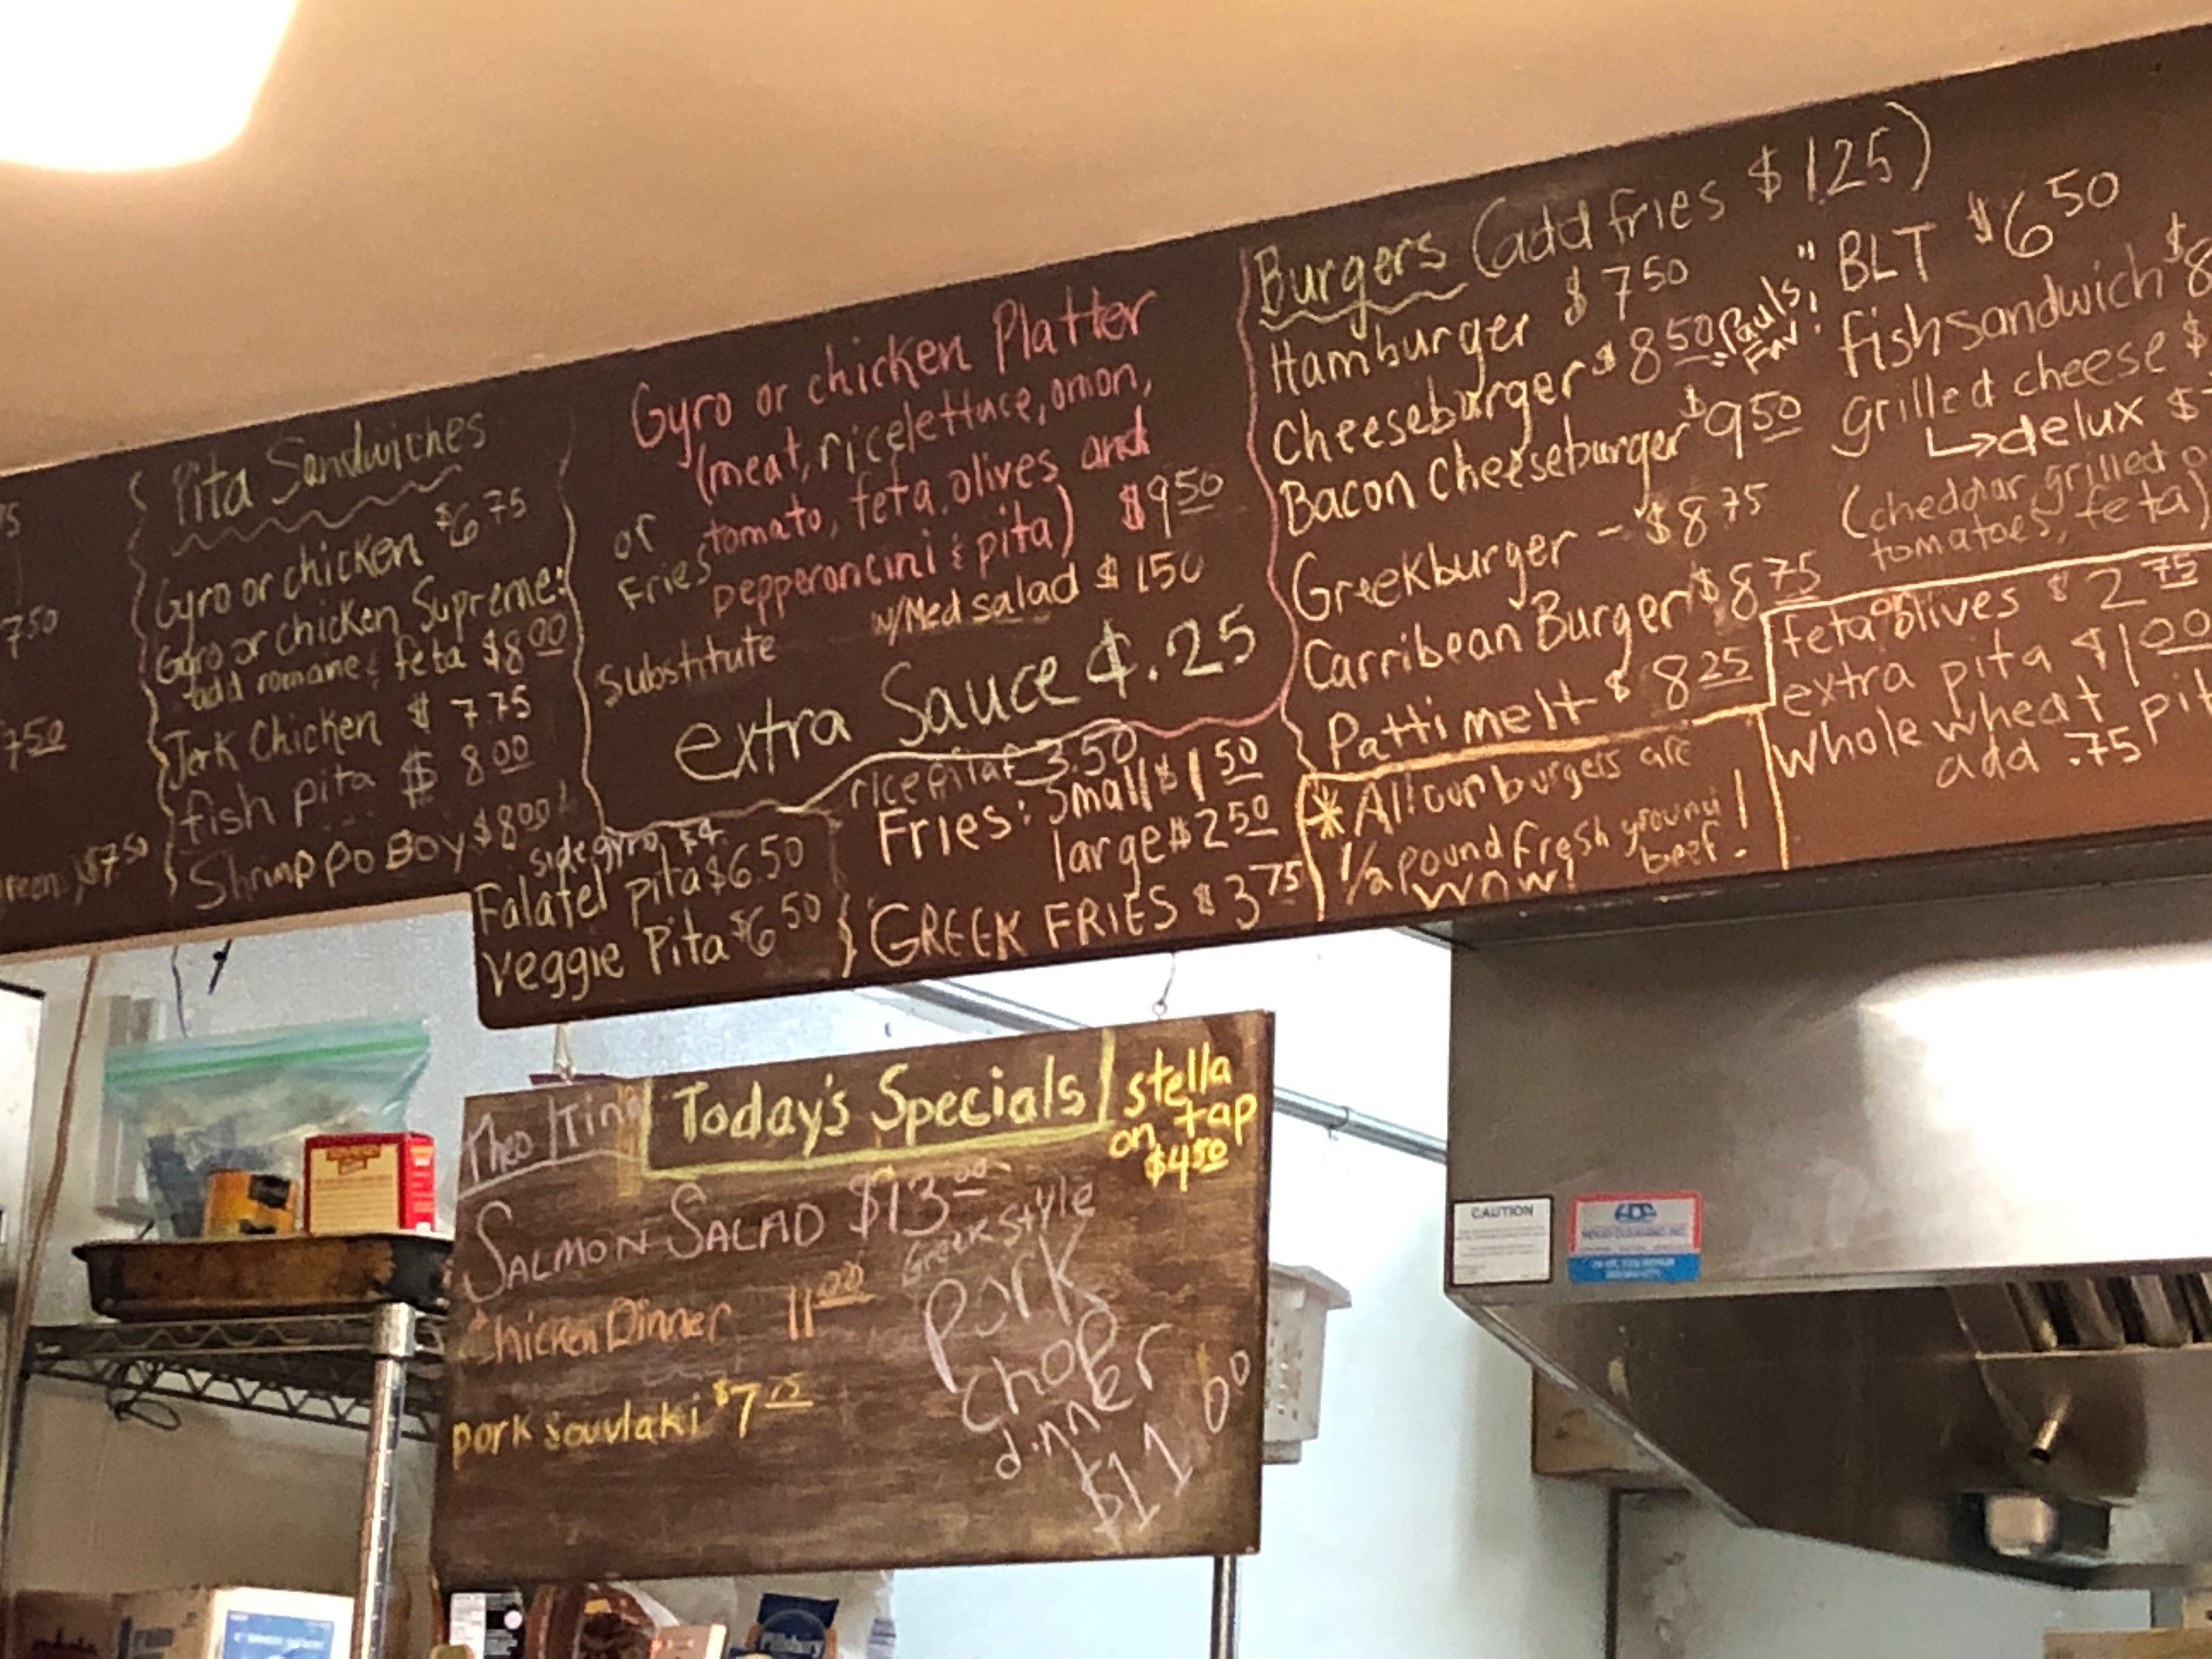 75
750
750
green) $7.50
Pita Sandwiches
Gyro or chicken $6 75
Gyro or chicken Supreme:
add romane & feta $8 00
Jerk Chicken $ 7.75
fish pita $ 8 00
Shrimp po Boy $8 00
Gyro or chicken Platter
(meat, rice lettuce, onion,
or tomato, feta, olives and
Fries pepperoncini & pita) $9 50
Substitute w/Med salad $ 1 50
extra Sauce ¢.25
side gyro $4.
Falafel pita $6.50
Veggie Pita $6 50
rice pilaf 3.50
Fries: Small $1 50
large $2 50
GREEK FRIES $3 75
Burgers (add fries $1.25)
Hamburger $ 7 50
Cheeseburger $ 8 50 "Pauls Fav!"
Bacon cheeseburger $9 50
Greekburger - $8 75
Carribean Burger $8 75
Patti melt $ 8 25
* All our burgers are
1/2 pound fresh ground
beef!
WOW!
BLT $6 50
fish sandwich $8
grilled cheese $
delux $
(cheddar, grilled
tomatoes, feta)
feta or olives $ 2 75
extra pita $1 00
Whole wheat
add .75
Today's Specials
stella
on tap
$4 50
SALMON SALAD $13 00
Chicken Dinner 11 00
pork souvlaki $7 75
Greek Style
Pork
Chop
dinner
$11.00
CAUTION
Pillsbury